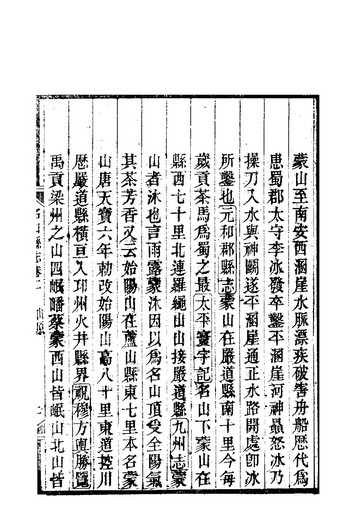 蒙山至南安西溷崖水脈漂疾破害舟船歷代為
患蜀郡太守李冰發卒鑿平溷崖河神贔怒冰乃
操刀入水與神鬭遂平溷崖通正水路開處卽冰
所鑿也元和郡縣志蒙山在嚴道縣南十里今每
歲貢茶為蜀之最太平寰宇記名山下蒙山在
縣西七十里北連羅繩山山接嚴道縣九州志蒙
山者沐也言雨露蒙沐因以為名山頂受全陽氣
其茶芳香又云始陽山在蘆山縣東七里本名蒙
山唐天寶六年勅改始陽山高八十里東道控川
歷嚴道縣橫亘入邛州火井縣界祝穆方輿勝覽
禹貢梁州之山四岷嶓蔡蒙西山皆岷山北山皆
名山縣志卷二